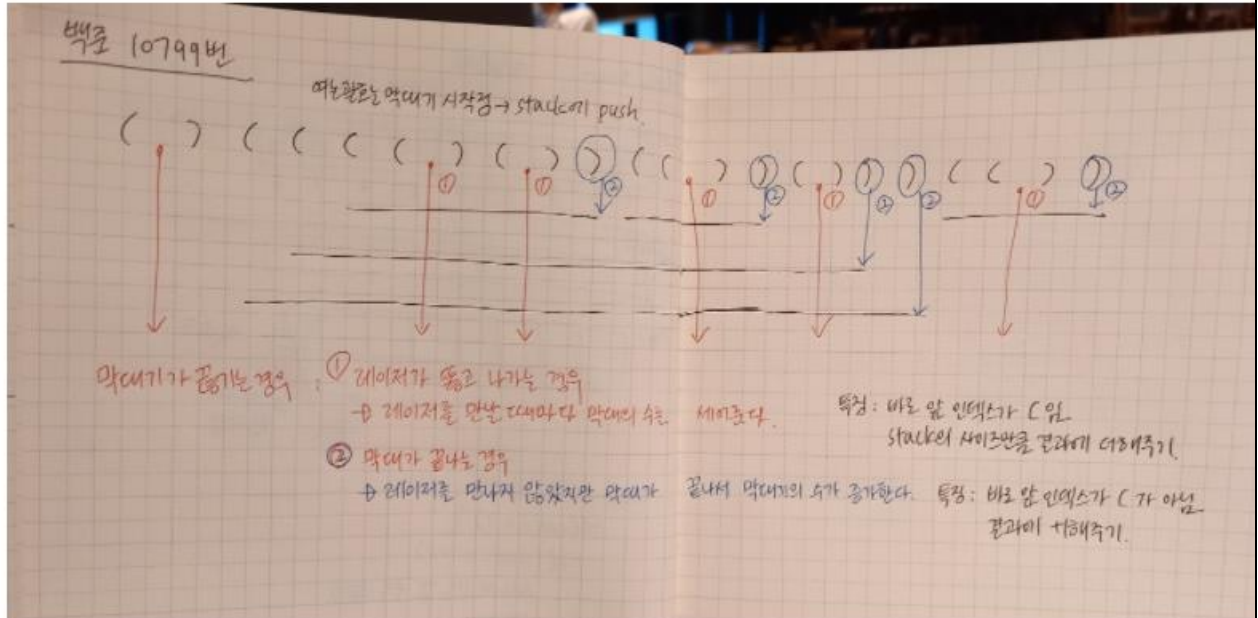 백준 10799번
여는괄호는 막대기 시작점 → stack에 push.
( ) ( ( ( ( ) ( ) ) ( ( ) ) ( ) ) ) ( ( ) )
① ① ② ① ② ① ② ② ① ②
막대기가 끊기는 경우 : ① 레이저가 뚫고 나가는 경우
→ 레이저를 만날 때마다 막대의 수를 세어준다.
특징 : 바로 앞 인덱스가 ( 임.
stack의 사이즈만큼 결과에 더해주기.
② 막대가 끝나는 경우
→ 레이저를 만나지 않았지만 막대가 끝나서 막대기의 수가 증가한다.
특징 : 바로 앞 인덱스가 ( 가 아님
결과에 +1해주기.